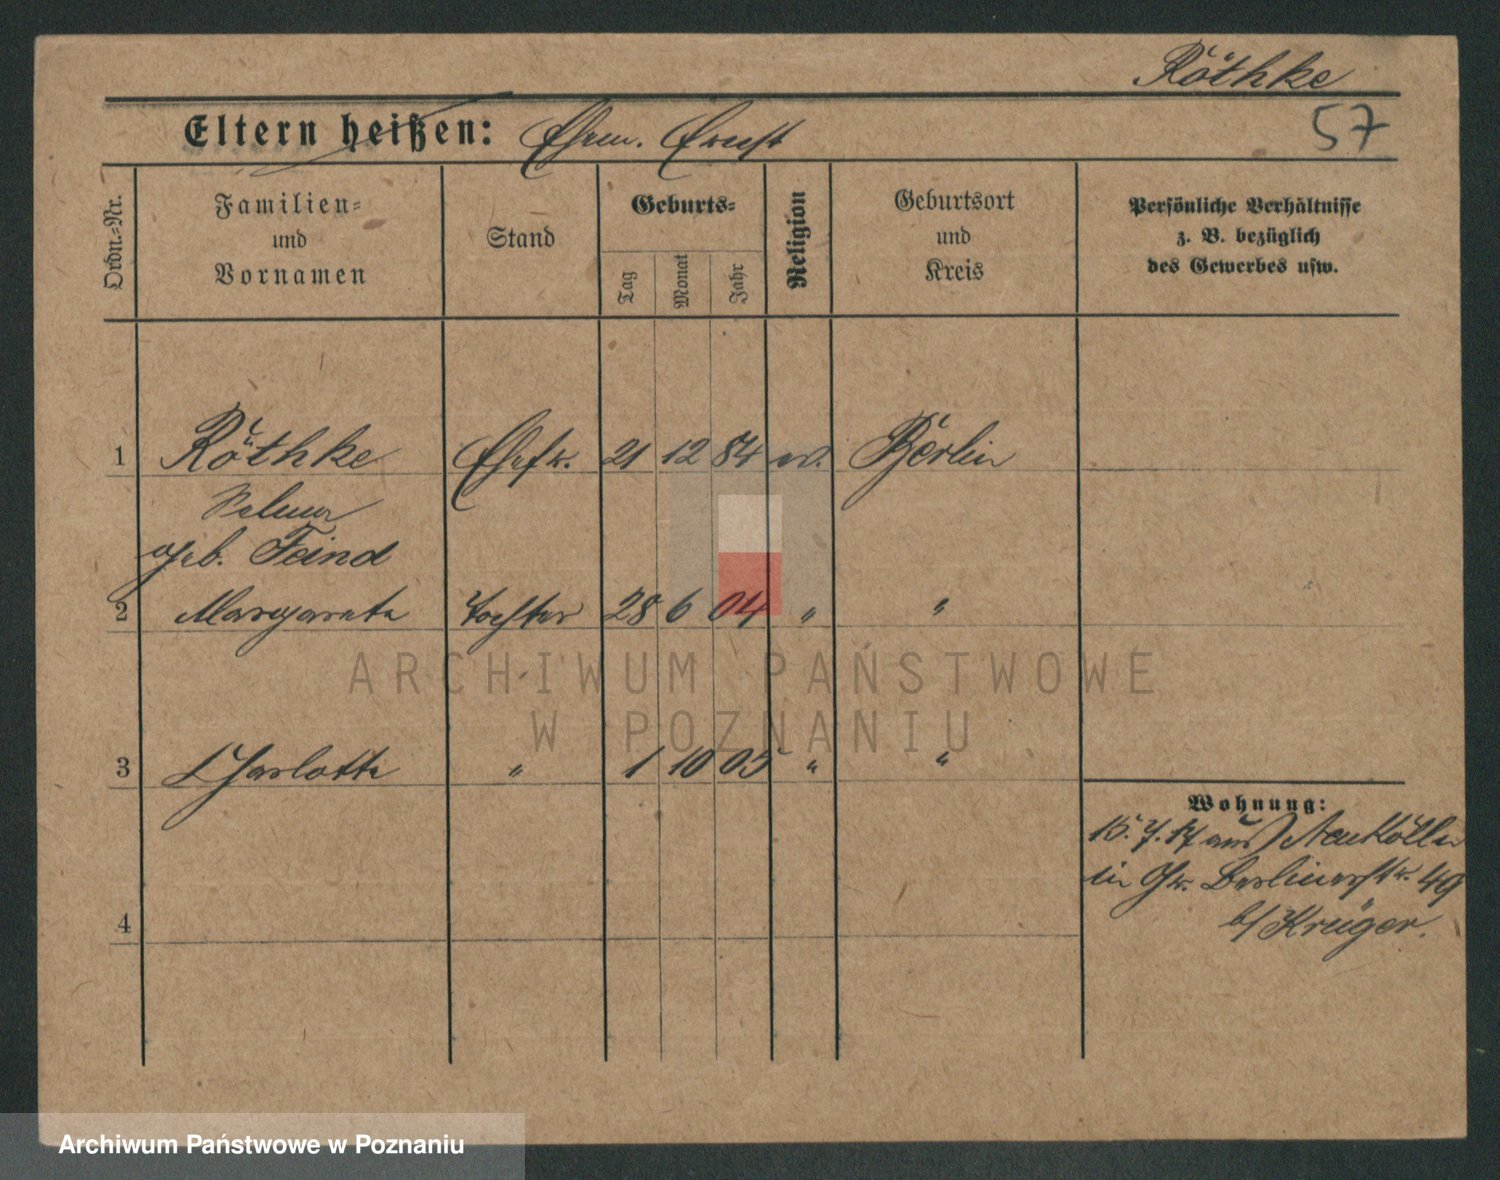 Röthke
57
Eltern heißen: Ehem. Ernst
Ordn.-Nr.
Familien- und Vornamen
Stand
Geburts-
Tag
Monat
Jahr
Religion
Geburtsort und Kreis
Persönliche Verhältnisse
z. B. bezüglich
des Gewerbes usw.
1 Röthke Ehefr. 21 12 84 ev. Berlin
geb. Feind
2 Margarete Tochter 28 6 04 " "
3 Charlotte " 1 10 05 " "
Wohnung:
15.7.17 aus Neukölln
in Gr. Berlinerstr. 49
b/ Krüger.
4
ARCHIWUM PAŃSTWOWE
W POZNANIU
Archiwum Państwowe w Poznaniu